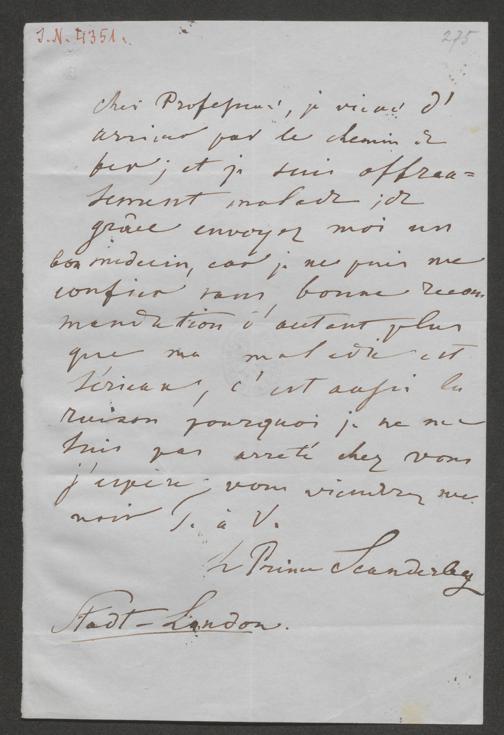 J.N. 4351.
275
cher Professeur, je viens d'
arriver par le chemin de
fer; et je suis affreu=
sement malade; de
grâce envoyez moi un
bon médecin, car je ne puis me
confier sans bonne recom
mandation d'autant plus
que ma maladie est
sérieuse, c'est aussi la
raison pourquoi je ne me
suis pas arreté chez vous
j'espère, vous viendrez me
voir T. à V.
Le Prince Scanderbeg
Stadt-London.